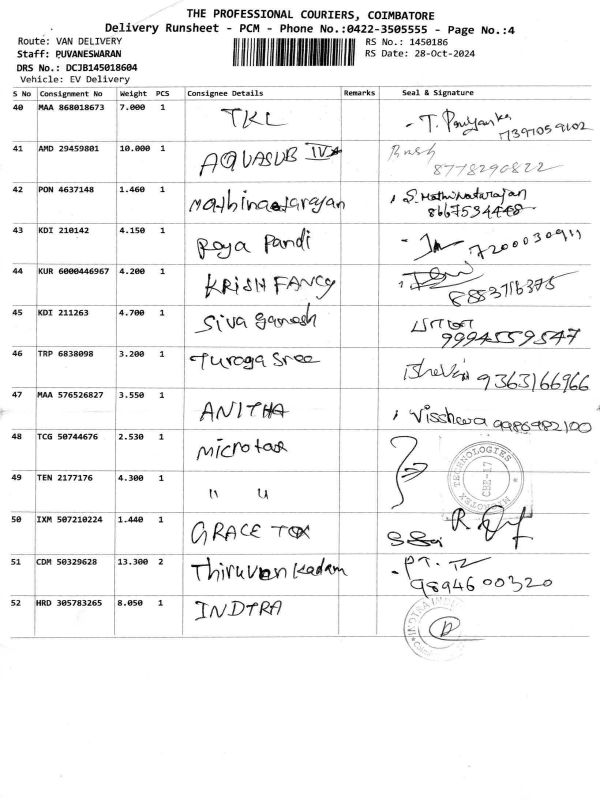 THE PROFESSIONAL COURIERS, COIMBATORE
Delivery Runsheet - PCM - Phone No.:0422-3505555 - Page No.:4
Route: VAN DELIVERY RS No.: 1450186
Staff: PUVANESWARAN RS Date: 28-Oct-2024
DRS No.: DCJB145018604
Vehicle: EV Delivery
S No Consignment No Weight PCS Consignee Details Remarks Seal & Signature
40 MAA 868018673 7.000 1 TKL - T. Priyanka
7397059102
41 AMD 29459801 10.000 1 AQUASUB IV
8778290822
42 PON 4637148 1.460 1 Mathinatarajan S. Mathinatarajan
8667534448
43 KDI 210142 4.150 1 Raya Pandi 7200030911
44 KUR 6000446967 4.200 1 KRISH FANCY
8883716375
45 KDI 211263 4.700 1 Siva Ganesh
9994559547
46 TRP 6838098 3.200 1 Turoga Sree 9363166966
47 MAA 576526827 3.550 1 ANITHA 9986982100
48 TCG 50744676 2.530 1 Microtax
TECHNOLOGIES
CBE-17
49 TEN 2177176 4.300 1 " "
50 IXM 507210224 1.440 1 GRACE TOX
51 CDM 50329628 13.300 2 Thiruvenkadam
9894600320
52 HRD 305783265 8.050 1 INDTRA